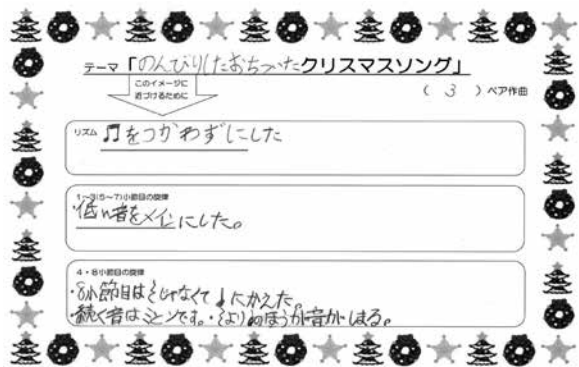 テーマ「のんびりしたおちついたクリスマスソング」
このイメージに
近づけるために
( 3 )ペア作曲
リズム ♫をつかわずにした
1~3(5~7)小節目の旋律
・低い音をメインにした。
4・8小節目の旋律
・8小節目は𝄽じゃなくて♩にかえた。
・続く音はミとソです。・𝄽より のほうが音がしまる。